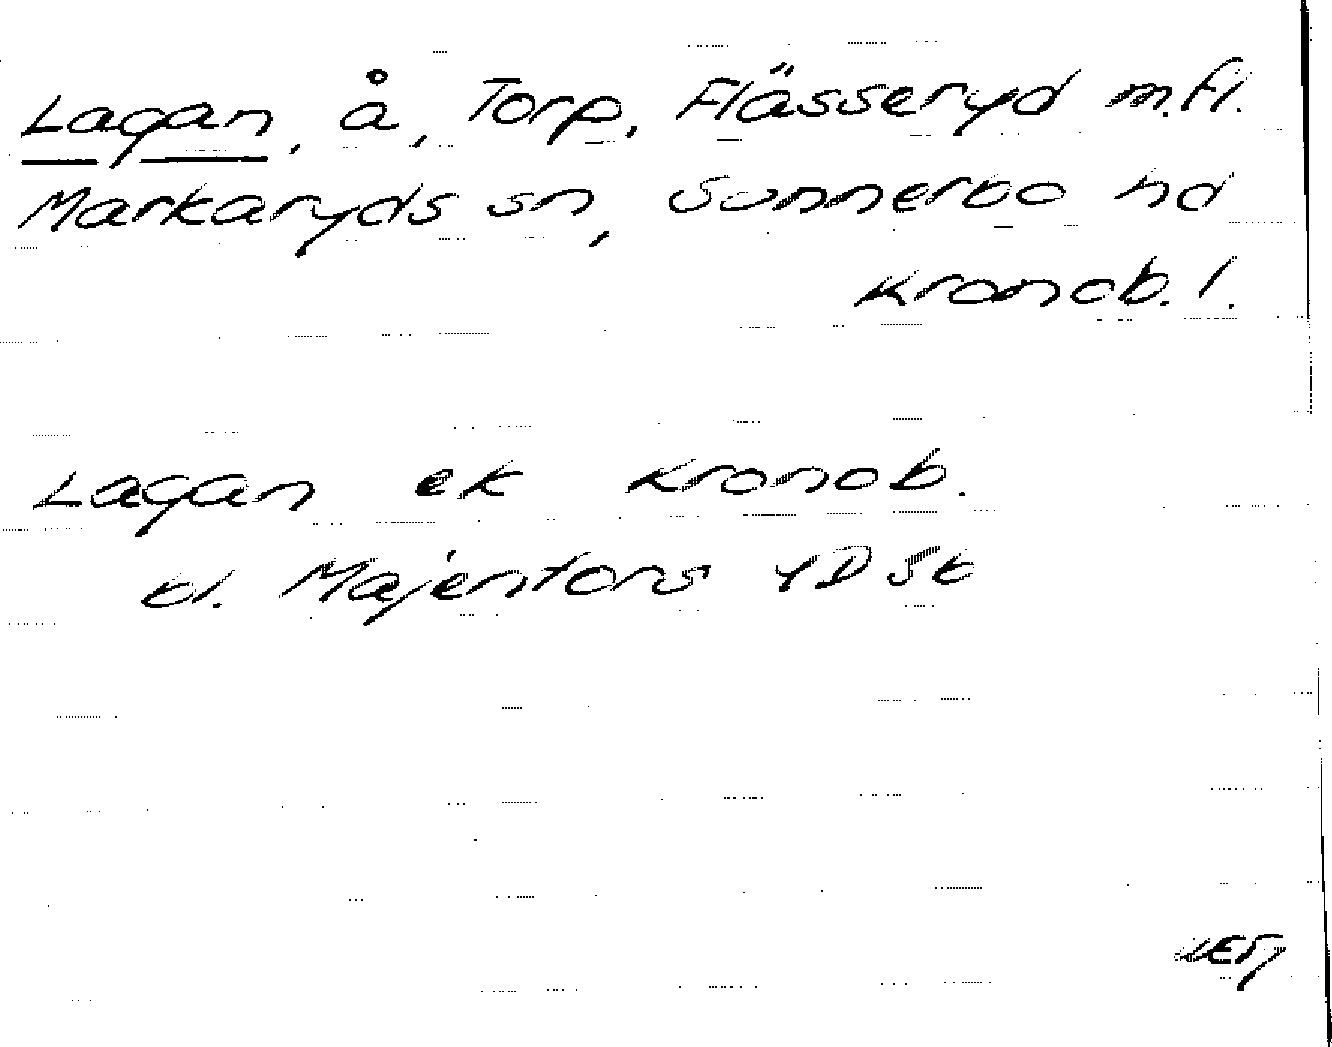 Lagan, å, Torp, Flässeryd m.fl.
Markaryds sn, Sunnerbo hd
Kronob. l.
Lagan ek Kronob.
bl. Majenfors 4D St